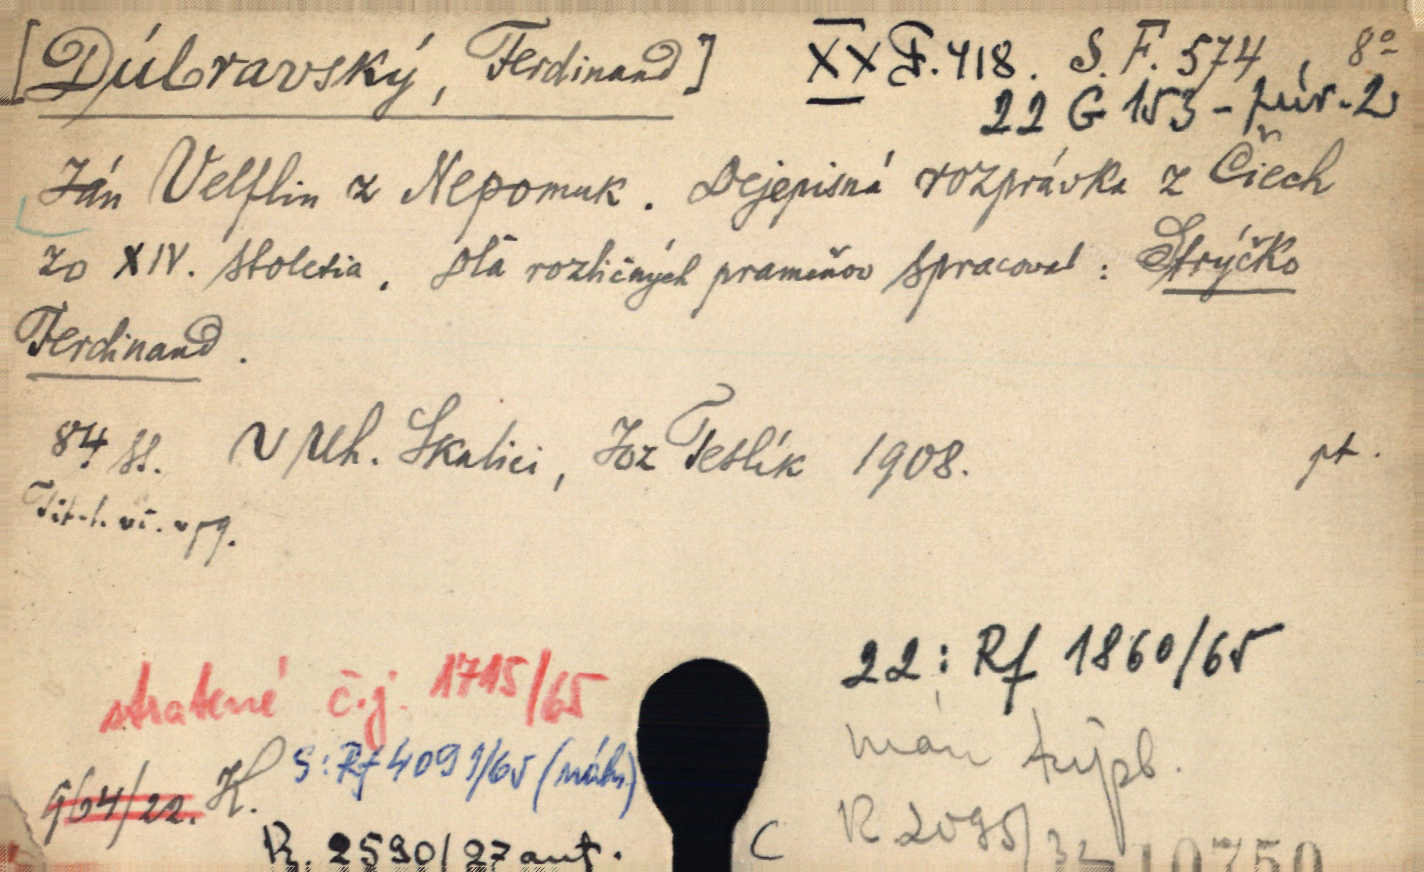 [Dúbravský, Ferdinand] XX F. 418. S. F. 574, 8º
22 G 153 -
Ján Velflin z Nepomuk. Dejepisná rozprávka z Čiech
zo XIV. stoletia. Dľa rozličných prameňov spracoval: Strýčko
Ferdinand.
84 ss. V Uh. Skalici, Joz Teslík 1908. pt.
Tit. l. vč. v pg.
stratené č.j. 1715/65
22: Rf 1860/65
S: Rf 4091/65 (náhr.)
964/22. K.
R 2095/
R. 2590/27 aut. C
10750